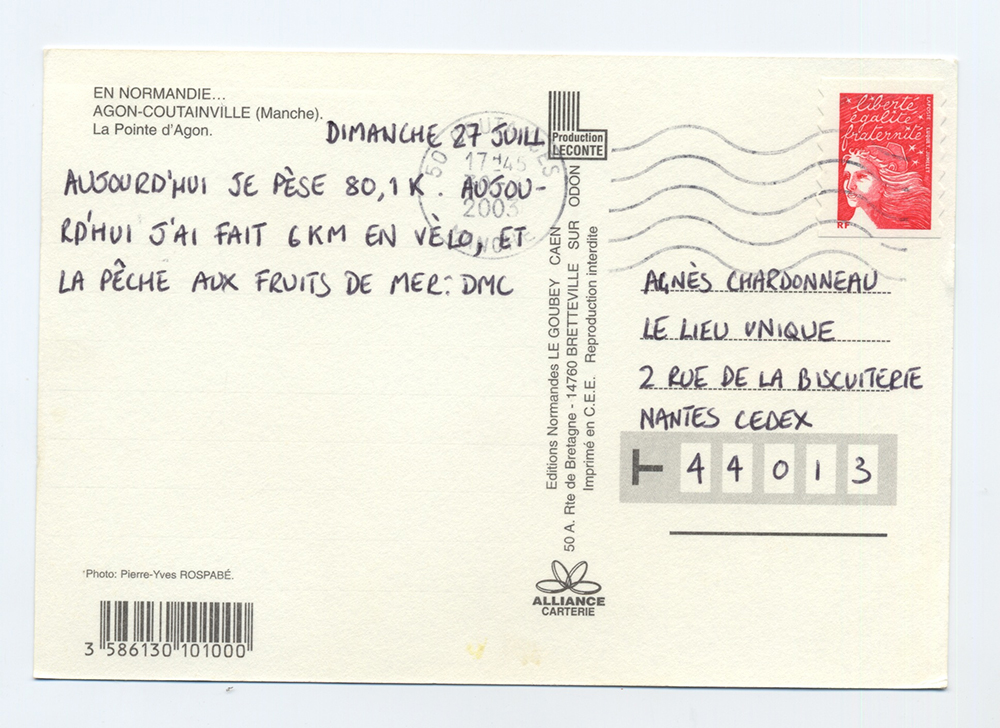 EN NORMANDIE...
AGON-COUTAINVILLE (Manche).
La Pointe d'Agon.
DIMANCHE 27 JUILL
AUJOURD'HUI JE PÈSE 80,1K. AUJOU-
RD'HUI J'AI FAIT 6KM EN VÈLO, ET
LA PÊCHE AUX FRUITS DE MER: DMC
50
17H45
2003
Production
LECONTE
Editions Normandes LE GOUBEY CAEN
50 A. Rte de Bretagne - 14760 BRETTEVILLE SUR ODON
Imprimé en C.E.E. Reproduction interdite
liberté
égalité
fraternité
RF
AGNÈS CHARDONNEAU
LE LIEU UNIQUE
2 RUE DE LA BISCUITERIE
NANTES CEDEX
44013
Photo: Pierre-Yves ROSPABÉ.
3 586130 101000
ALLIANCE
CARTERIE